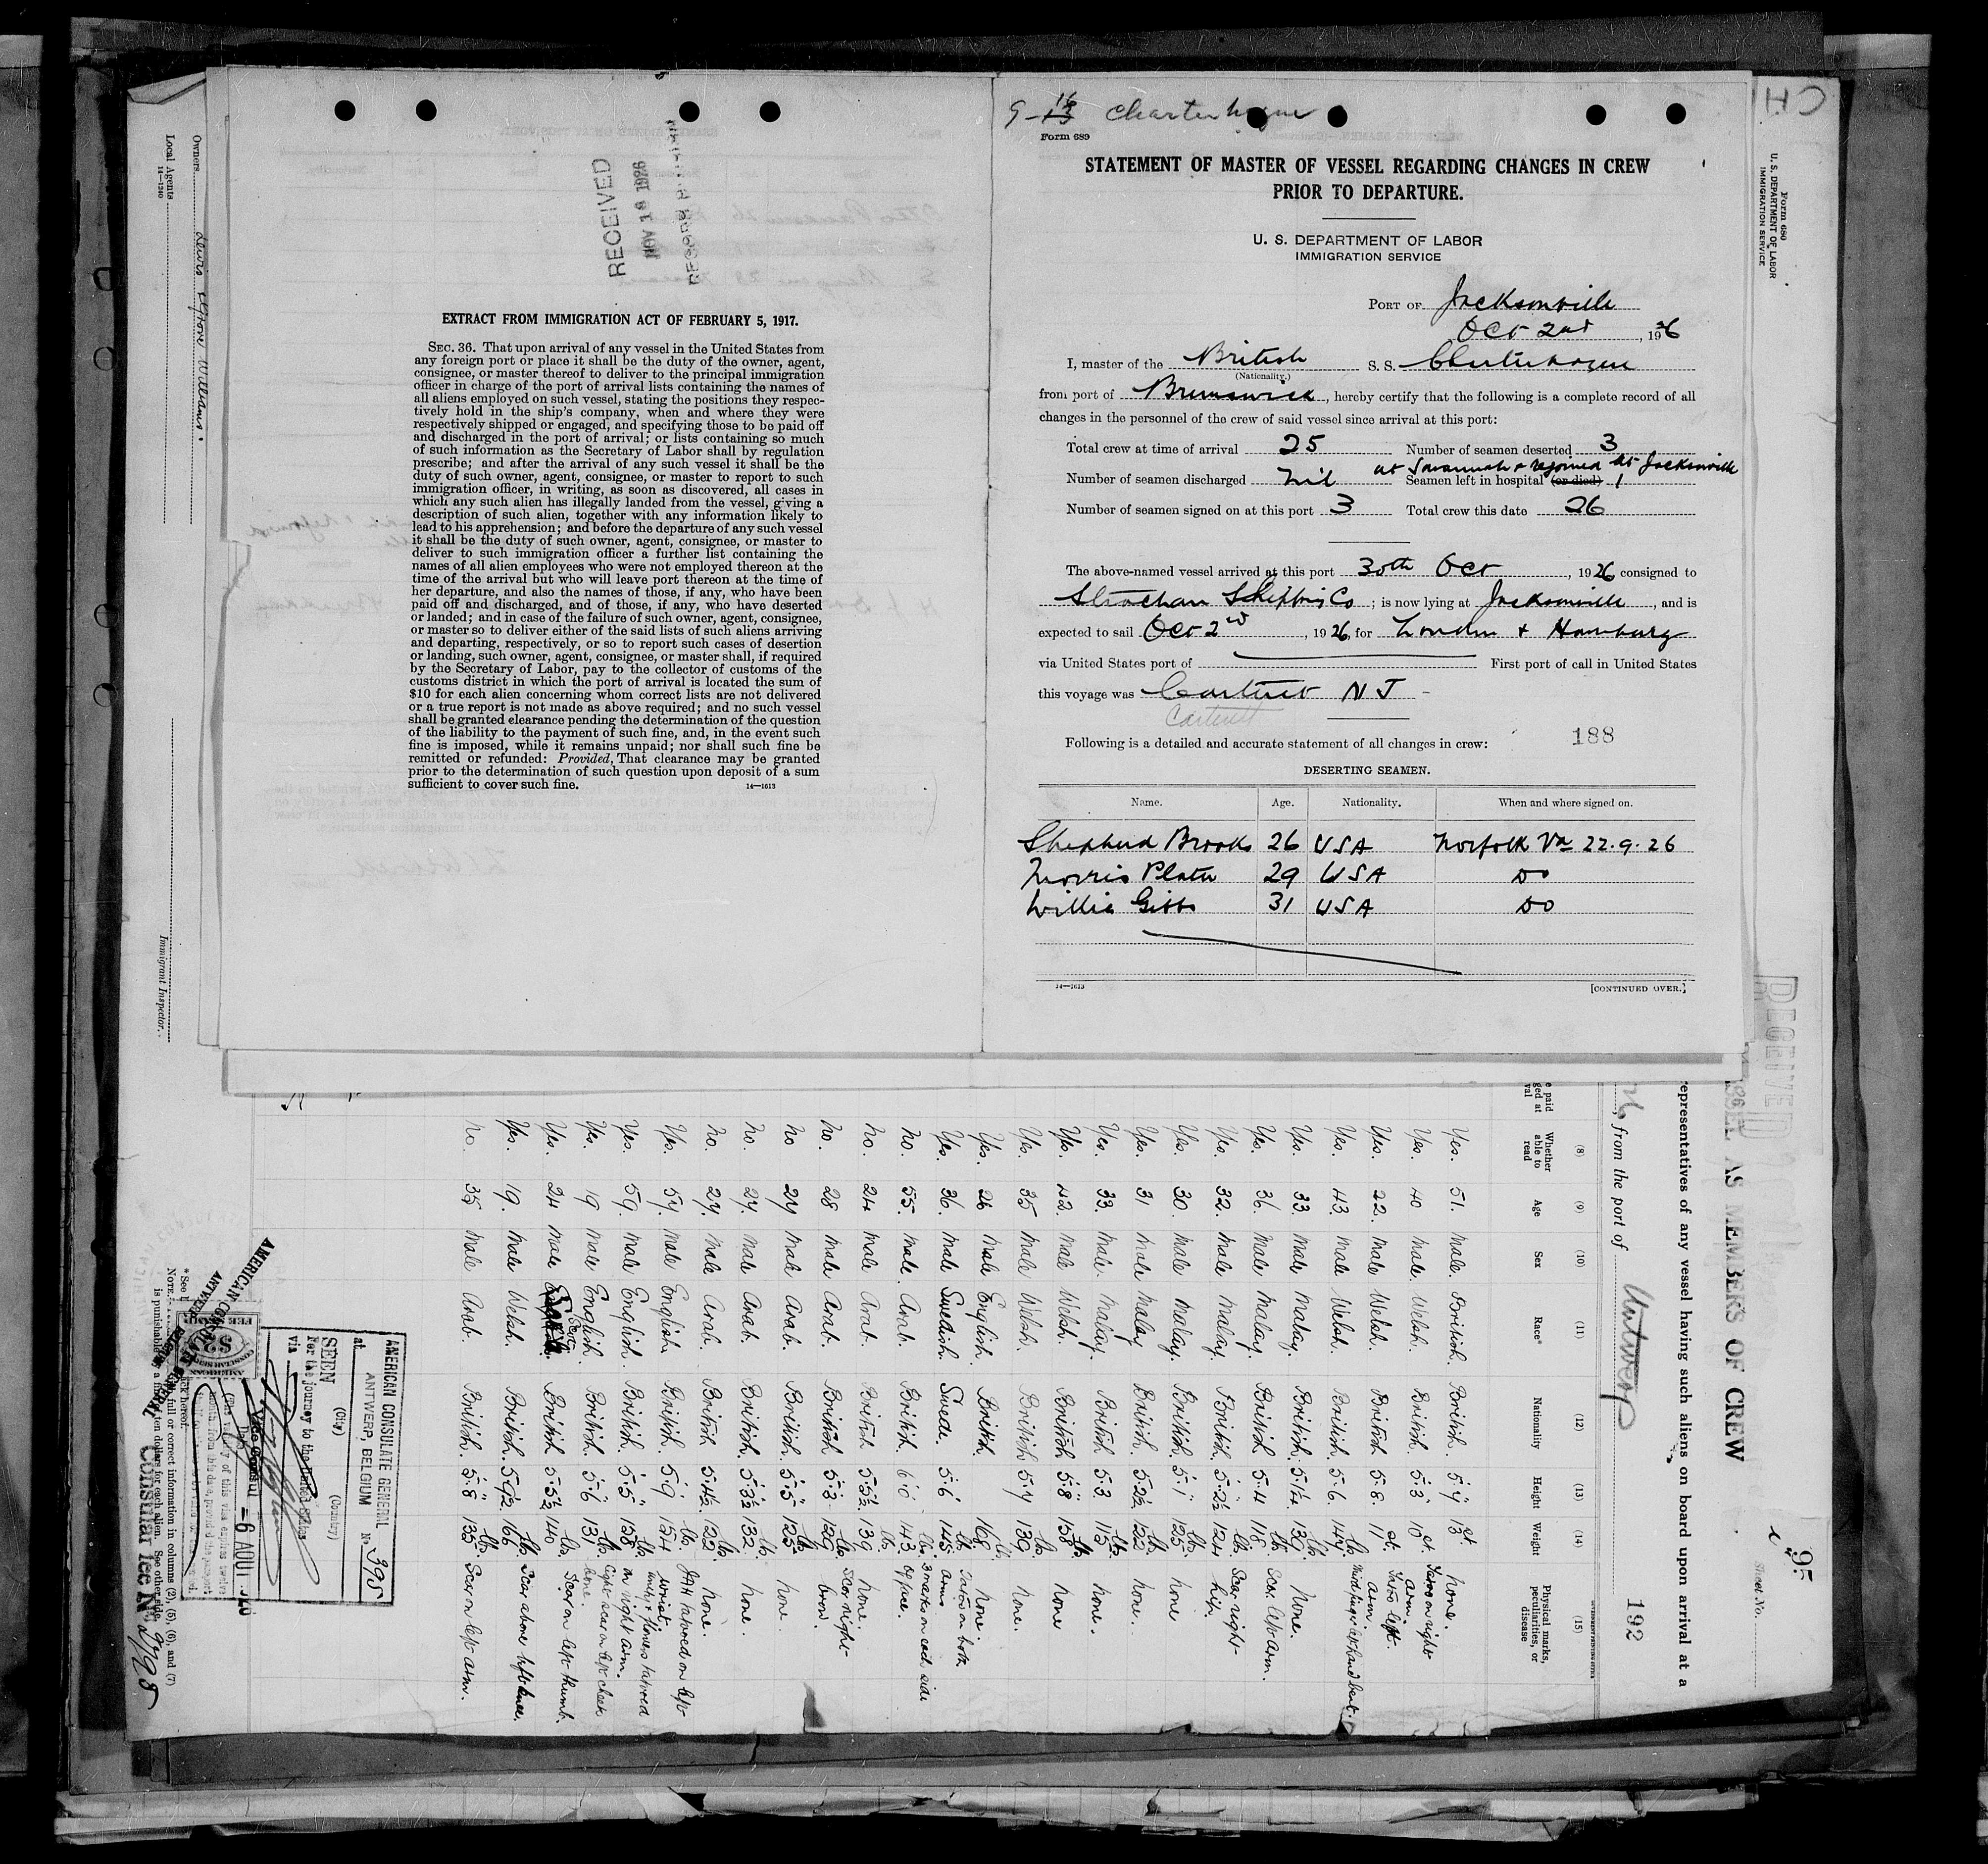 9-16 Charterhague
Form 689
STATEMENT OF MASTER OF VESSEL REGARDING CHANGES IN CREW
PRIOR TO DEPARTURE.
U. S. DEPARTMENT OF LABOR
IMMIGRATION SERVICE
PORT OF Jacksonville
Oct 2nd, 1926
I, master of the British S. S. Charterhague
(Nationality.)
from port of Brunswick, hereby certify that the following is a complete record of all
changes in the personnel of the crew of said vessel since arrival at this port:
Total crew at time of arrival 25 Number of seamen deserted 3
at Savannah & rejoined at Jacksonville
Number of seamen discharged Nil Seamen left in hospital (or died) 1
Number of seamen signed on at this port 3 Total crew this date 26
The above-named vessel arrived at this port 30th Oct, 1926 consigned to
Strachan Shipping Co; is now lying at Jacksonville, and is
expected to sail Oct 2nd, 1926, for London & Hamburg
via United States port of First port of call in United States
this voyage was Carteret N J
Following is a detailed and accurate statement of all changes in crew: 188
DESERTING SEAMEN.
Name. Age. Nationality. When and where signed on.
Shepherd Brooks 26 USA Norfolk Va 22.9.26
Morris Plater 29 USA Do
Willie Gibbs 31 USA Do
14—1613
[CONTINUED OVER.]
RECEIVED
NOV 18 1926
EXTRACT FROM IMMIGRATION ACT OF FEBRUARY 5, 1917.
SEC. 36. That upon arrival of any vessel in the United States from
any foreign port or place it shall be the duty of the owner, agent,
consignee, or master thereof to deliver to the principal immigration
officer in charge of the port of arrival lists containing the names of
all aliens employed on such vessel, stating the positions they respec-
tively hold in the ship's company, when and where they were
respectively shipped or engaged, and specifying those to be paid off
and discharged in the port of arrival; or lists containing so much
of such information as the Secretary of Labor shall by regulation
prescribe; and after the arrival of any such vessel it shall be the
duty of such owner, agent, consignee, or master to report to such
immigration officer, in writing, as soon as discovered, all cases in
which any such alien has illegally landed from the vessel, giving a
description of such alien, together with any information likely to
lead to his apprehension; and before the departure of any such vessel
it shall be the duty of such owner, agent, consignee, or master to
deliver to such immigration officer a further list containing the
names of all alien employees who were not employed thereon at the
time of the arrival but who will leave port thereon at the time of
her departure, and also the names of those, if any, who have been
paid off and discharged, and of those, if any, who have deserted
or landed; and in case of the failure of such owner, agent, consignee,
or master so to deliver either of the said lists of such aliens arriving
and departing, respectively, or so to report such cases of desertion
or landing, such owner, agent, consignee, or master shall, if required
by the Secretary of Labor, pay to the collector of customs of the
customs district in which the port of arrival is located the sum of
$10 for each alien concerning whom correct lists are not delivered
or a true report is not made as above required; and no such vessel
shall be granted clearance pending the determination of the question
of the liability to the payment of such fine, and, in the event such
fine is imposed, while it remains unpaid; nor shall such fine be
remitted or refunded: Provided, That clearance may be granted
prior to the determination of such question upon deposit of a sum
sufficient to cover such fine.
14—1613
Form 680
U. S. DEPARTMENT OF LABOR
IMMIGRATION SERVICE
RECEIVED
AS MEMBERS OF CREW
Sheet No.
95
representatives of any vessel having such aliens on board upon arrival at a
26, from the port of Antwerp 192
(8) (9) (10) (11) (12) (13) (14) (15)
Whether able to read Age Sex Race* Nationality Height Weight Physical marks, peculiarities, or disease
Yes. 51. Male. British. British. 5·7 13 st. None.
Yes. 40 Male. Welsh. British. 5·3 10 st. Tatoo on right arm.
Yes. 22. Male Welsh. British 5·8. 11 st. Tatoo left arm.
Yes. 43. Male Welsh. British. 5·6.
Yes. 33. Male Malay. British. 5·1¼ 139 lb. None.
Yes. 36. Male Malay. British 5·4 118 lb. Scar left arm.
Yes. 32. Male Malay. British. 5·2½ 124 lb. Scar right hip.
Yes. 30. Male Malay. British. 5·1 125 lb. None
Yes. 31 Male Malay British. 5·2½ 122 lb. None.
Yes. 33. Male. Malay. British 5·3 115 lb. None.
Yes. 42. Male Welsh. British 5·8 158 lb. None
Yes. 35 Male Welsh. British 5·7 139 lb. None.
Yes. 26 Male English. British. 168 lb. None.
Yes. 36. Male Swedish Swede. 5·6 145 lb. Tatoo on both arms
No. 55. Male. Arab. British. 6·0 143 lb. 3 marks on each side of face.
No. 24 Male Arab. British 5·5½ 139 lb. None.
No. 28 Male Arab. British 5·3 129 lb. Scar right brow.
No 27 Male Arab. British. 5·5 125 lb. None.
No. 27. Male Arab. British. 5·3½ 132 lb. None.
No. 27. Male Arab. British 5·4½ 122 lb. None.
Yes. 57 Male English British. 5·9 154 lb. JAH tatooed on left wrist.
Yes. 59. Male English. British. 5·5 158 lb. flowers tatooed on right arm.
Yes. 19 Male English. British. 5·6 131 lb. scar on left cheek bone.
Yes. 24 Male British. 5·5½ 140 lb. Scar on left thumb.
Yes. 19. Male Welsh. British. 5·9½ 166 lb. Scar above left knee.
No. 35 Male Arab. British. 5·8 135 lb. Scar on left arm.
AMERICAN CONSULATE GENERAL
at ANTWERP, BELGIUM No 395
(City) (Country)
SEEN
For the journey to the United States
via
Vice Consul
-6 AOUT 1926
FEE STAMP
$2
AMERICAN CONSULATE GENERAL
ANTWERP
BELGIUM
Consular fee No 2798
Owners Lewis Grove Williams.
Local Agents
14—1240
Immigrant Inspector.